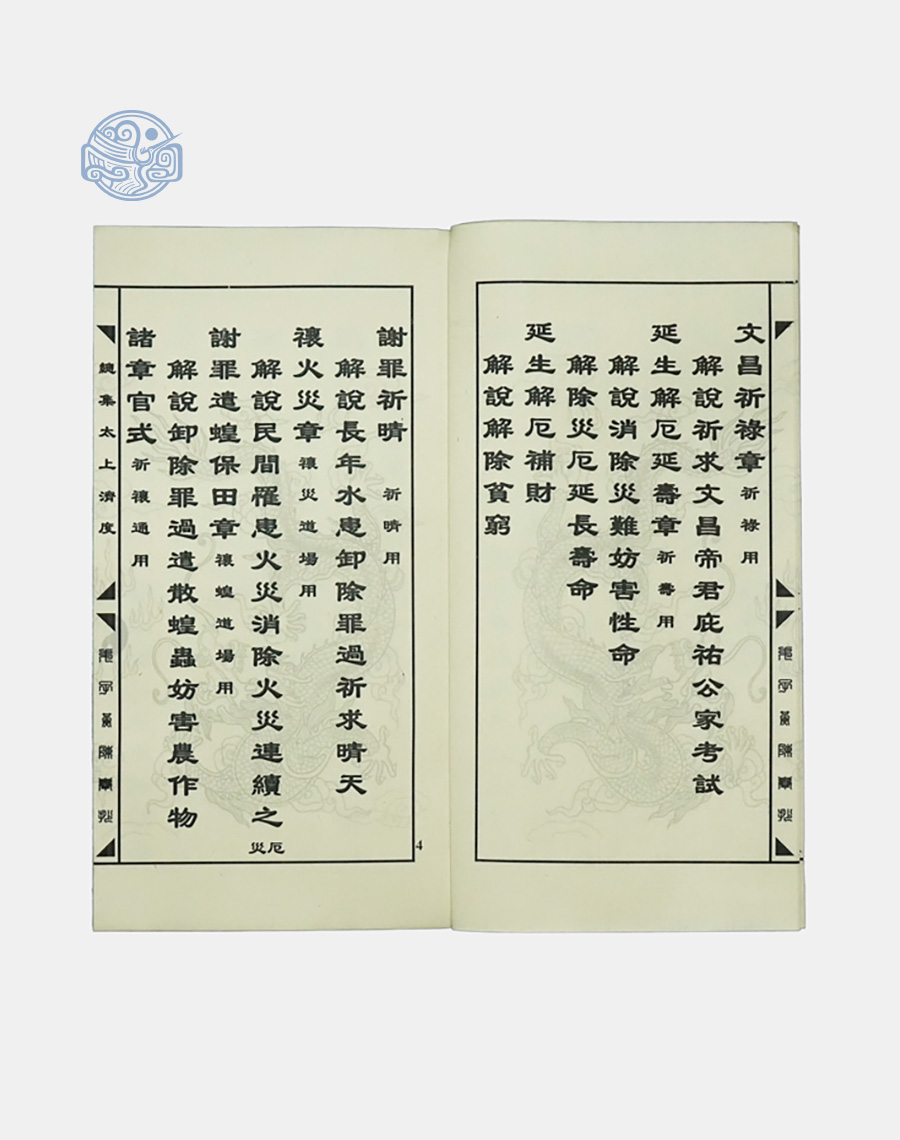 文昌祈祿章 祈祿用
解說祈求文昌帝君庇祐公家考試
延生解厄延壽章 祈壽用
解說消除災難妨害性命
解除災厄延長壽命
延生解厄補財
解說解除貧窮
謝罪祈晴 祈晴用
解說長年水患卸除罪過祈求晴天
禳火災章 禳災道場用
解說民間罹患火災消除火災連續之
災厄
謝罪遣蝗保田章 禳蝗道場用
解說卸除罪過遣散蝗蟲妨害農作物
諸章官式 祈禳通用
總集太上濟度
4